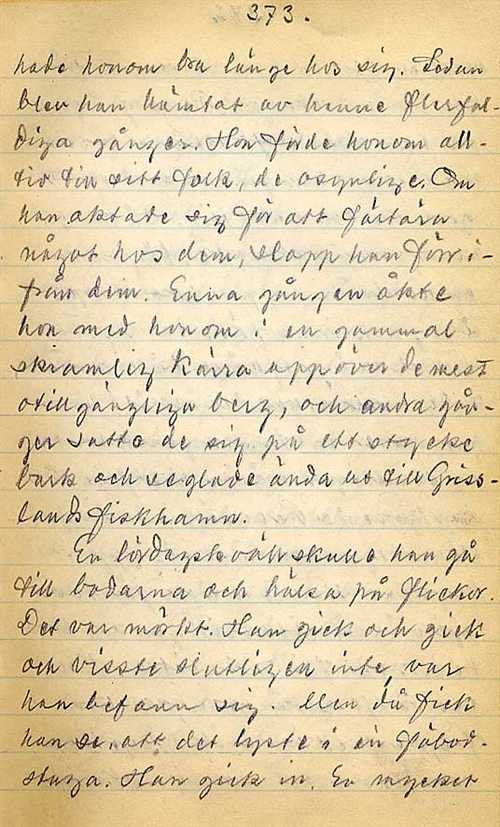 373.
hade honom bra länge hos sig. Sedan
blev han hämtat av henne flerfal-
diga gånger. Hon förde honom all-
tid till sitt folk, de osynlige. Om
han aktade sig för att förtära
något hos dem, slapp han förr i-
från dem. Enna gången åkte
hon med honom i en gammal
skramlig kärra upp över de mest
otillgängliga berg, och andra gån-
ger satte de sig på ett stycke
bark och seglade ända ut till Griss-
lands fiskhamn.
En lördagskväll skulle han gå
till bodarna och hälsa på flickor.
Det var mörkt. Han gick och gick
och visste slutligen inte, var
han befann sig. Men då fick
han se, att det lyste i en fäbod-
stuga. Han gick in. En mycket